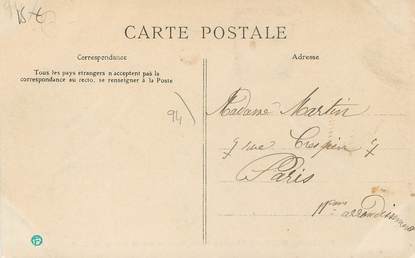 CARTE POSTALE
Correspondance
Tous les pays étrangers n'acceptent pas la
correspondance au recto, se renseigner à la Poste
94)
Adresse
Madame Martin
7 rue Crespin 7
Paris
11eme arrondissement